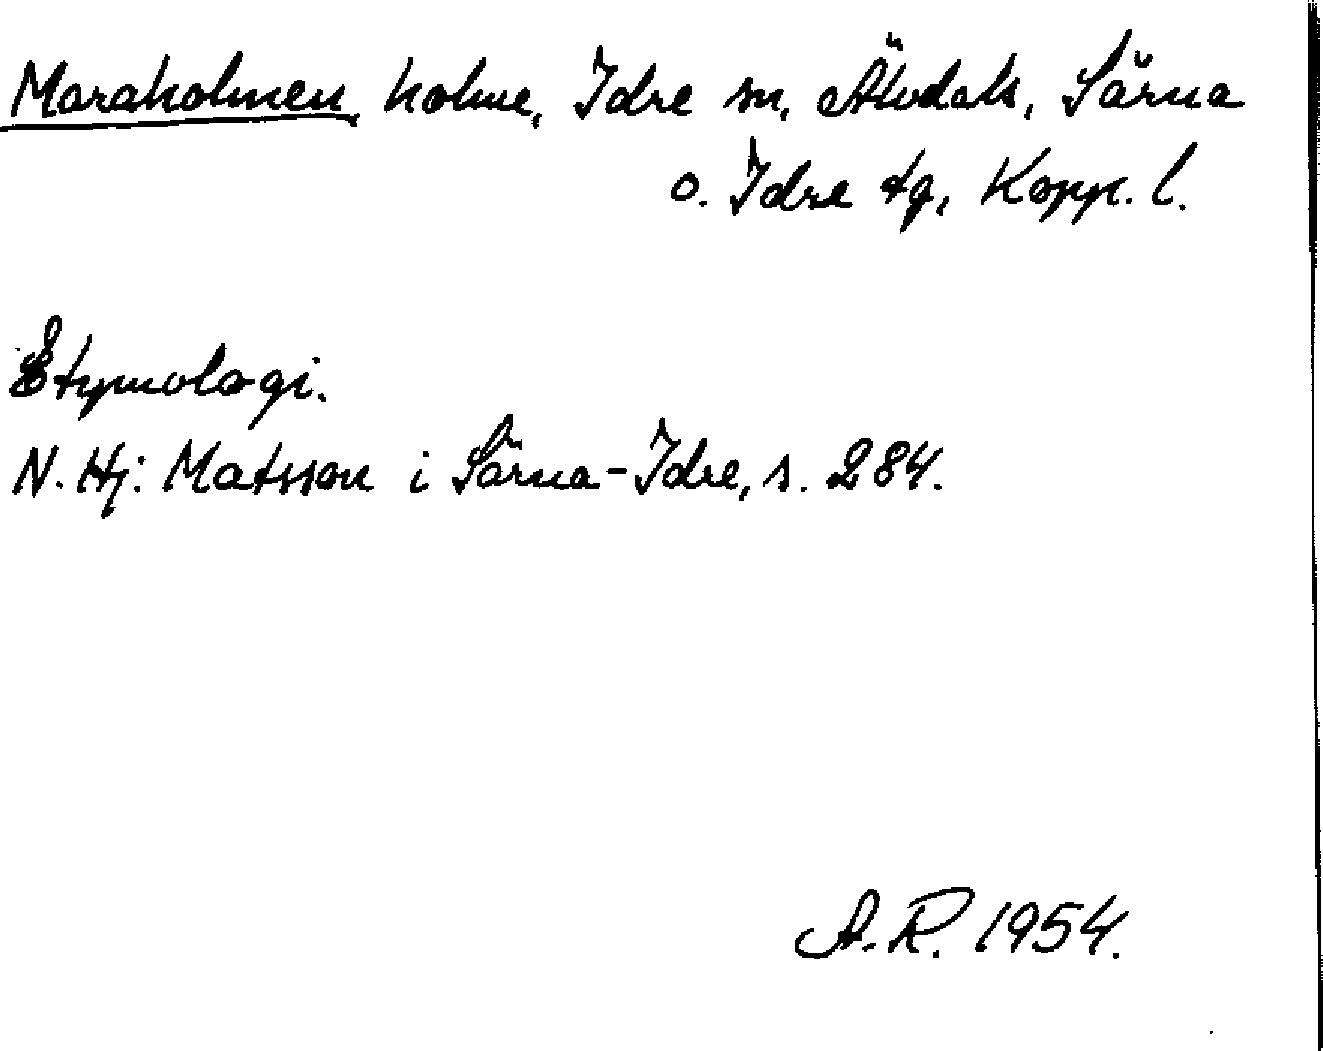 Maraholmen, holme, Idre sn, Älvdals, Särna
o. Idre tg, Kopp. l.
Etymologi.
N. Hj: Matsson i Särna-Idre, s. 284.
A.R. 1954.